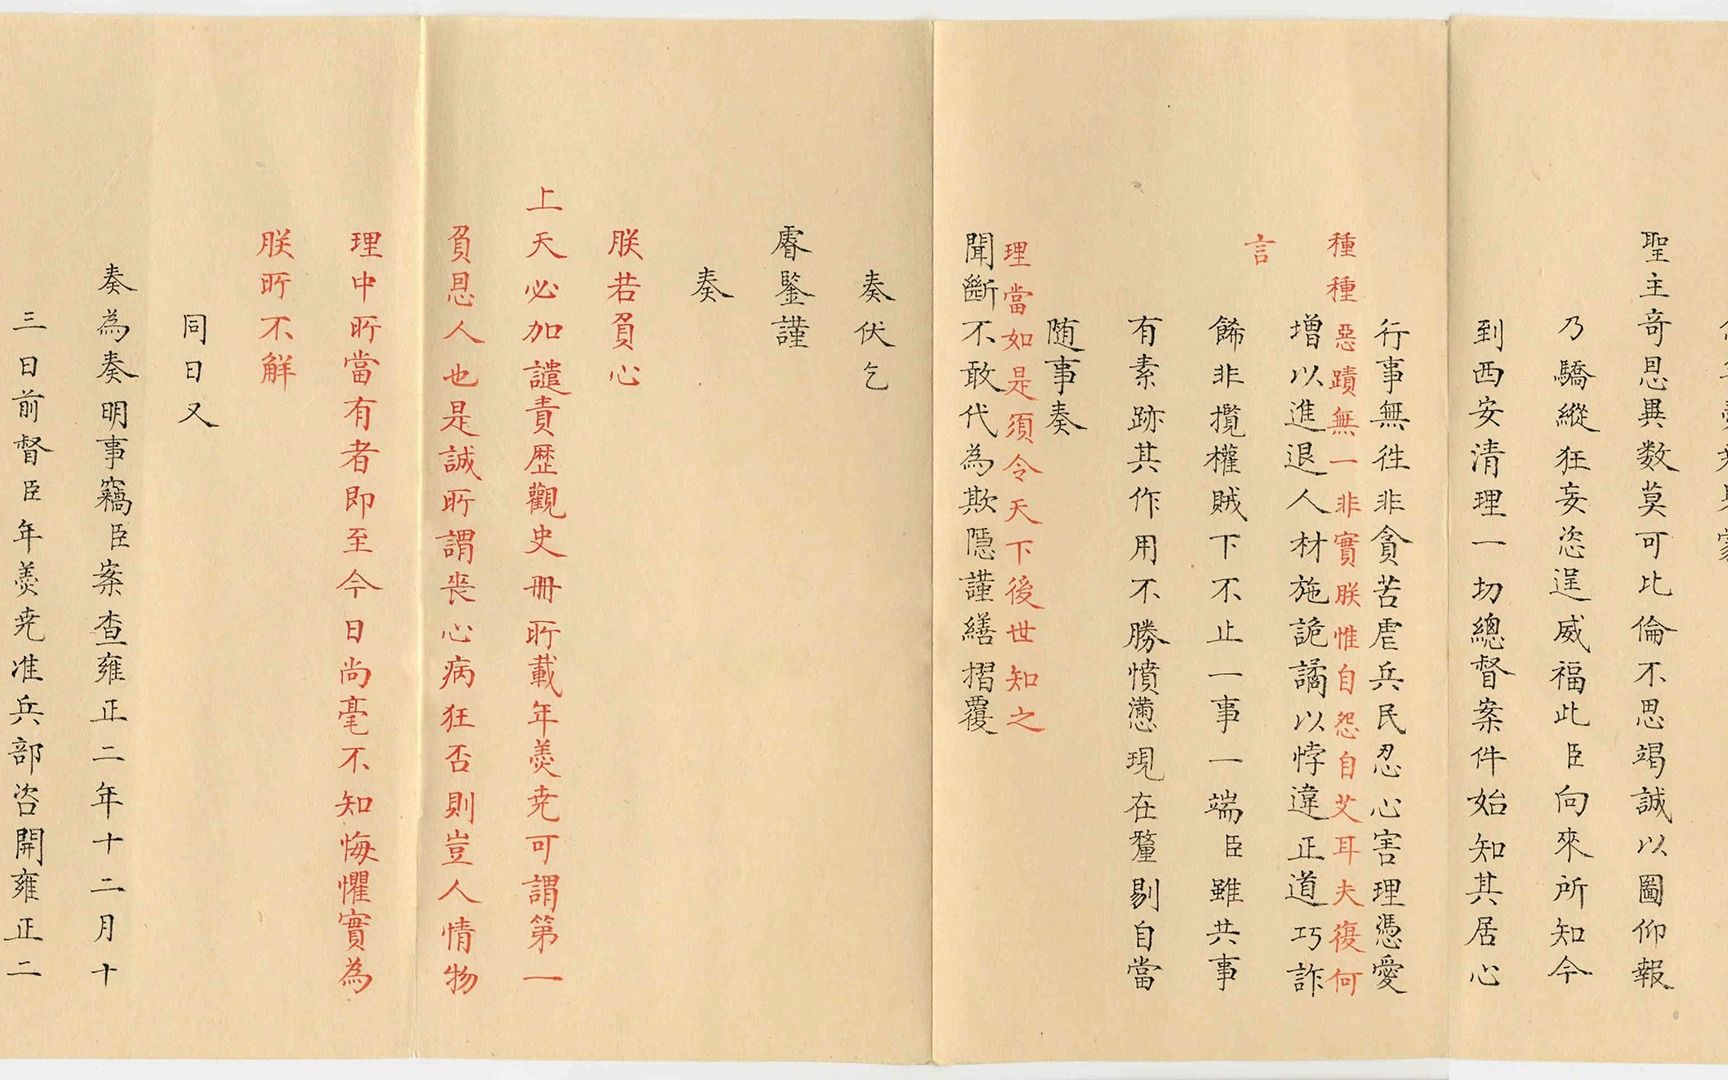 聖主奇恩異数莫可比倫不思竭誠以圖仰報
乃驕縱狂妄恣逞威福此臣向來所知今
到西安清理一切總督案件始知其居心
行事無徃非貪苦虐兵民忍心害理憑愛
種種惡蹟無一非實朕惟自怨自艾耳夫復何
增以進退人材施詭譎以悖違正道巧詐
言
餙非攬權賊下不止一事一端臣雖共事
有素跡其作用不勝憤懣現在釐剔自當
随事奏
理當如是須令天下後世知之
聞斷不敢代為欺隱謹繕摺覆
奏伏乞
睿鑒謹
奏
朕若負心
上天必加譴責歷觀史冊所載年羹尭可謂第一
負恩人也是誠所謂喪心病狂否則豈人情物
理中所當有者即至今日尚毫不知悔懼實為
朕所不解
同日又
奏為奏明事竊臣案查雍正二年十二月十
三日前督臣年羹尭准兵部咨開雍正二